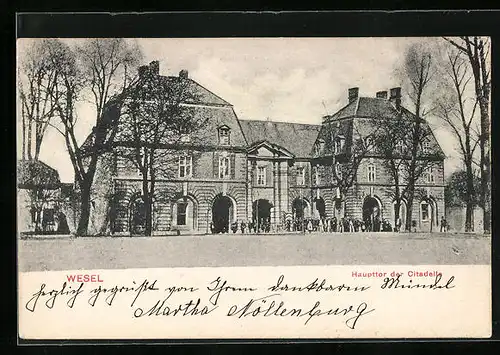 WESEL
Haupttor der Citadelle
herzlich gegrüßt von Ihrem dankbaren Mündel
Martha Nöllenburg